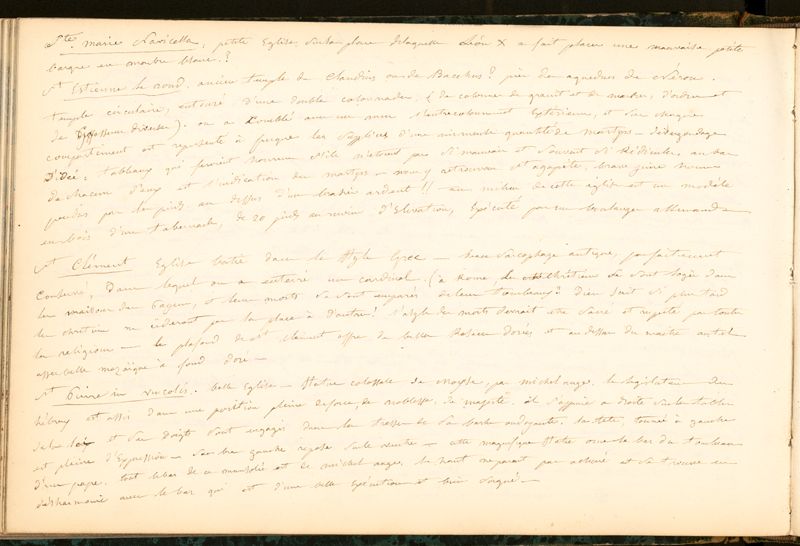 Ste. marie Navicella, petite Eglise, sur la place de laquelle Léon X a fait placer une mauvaise petite
barque en marbre blanc.?
St Estienne le rond. ancien temple de Claudius ou de Bacchus? près des aqueducs de Néron.
temple circulaire, entouré d'une double colonnade, (de colonnes de granit et de marbre, d'ordre et
de grosseur diverse). on a comblé avec un mur l'entrecolonnement extérieur, et sur chaque
compartiment est représenté à fresque les supplices d'une nirmense quantité de martyrs —
D'idée; tableaux qui feroient horreur s'ils n'étoient pas si mauvais et souvent si Ridicules, au bas
de chacun d'eux est l'indication du martyr — nous y retrouvons Ste agapète, brave jeune
pendus par les pieds au dessus d'un brasier ardent!! — au milieu de cette église est un modèle
en bois d'un tabernacle, de 20 pieds environ d'Elevation, Exécuté par un boulanger allemand —
St Clément Eglise bâtie dans le Style Grec — beau Sarcophage antique, parfaitement
Conservé, Dans lequel on a enterré un cardinal. (à Rome les chrétiens se sont logés dans
les maisons des Payens, et leurs morts se sont emparés de leurs tombeaux? Dieu sait si plus tard
les chrétiens ne céderont pas la place à d'autres! l'asyle des morts devroit être sacré et respecté par toutes
les religions — le plafond de St Clément offre de belles Rosaces Dorées et au dessus du maitre autel
assez belle mozaïque à fond doré —
St Pierre in vincoli. belle Eglise — Statue colossale de Moyse, par michel ange. le législateur des
hébreux est assis dans une position pleine de force, de noblesse, de majesté. il s'appuie à droite sur les tables
de la loi et ses doigts sont engagés dans les tresses de sa barbe ondoyante. sa tête, tournée à gauche
est pleine d'Expression — son bras gauche repose sur le ventre — cette magnifique Statue orne le bas du tombeau
d'un pape. tout le bas de ce mausolée est de michel ange, le haut ne paroit pas achevé et se trouve en
désharmonie avec le bas qui est d'une belle exécution et bien soigné —